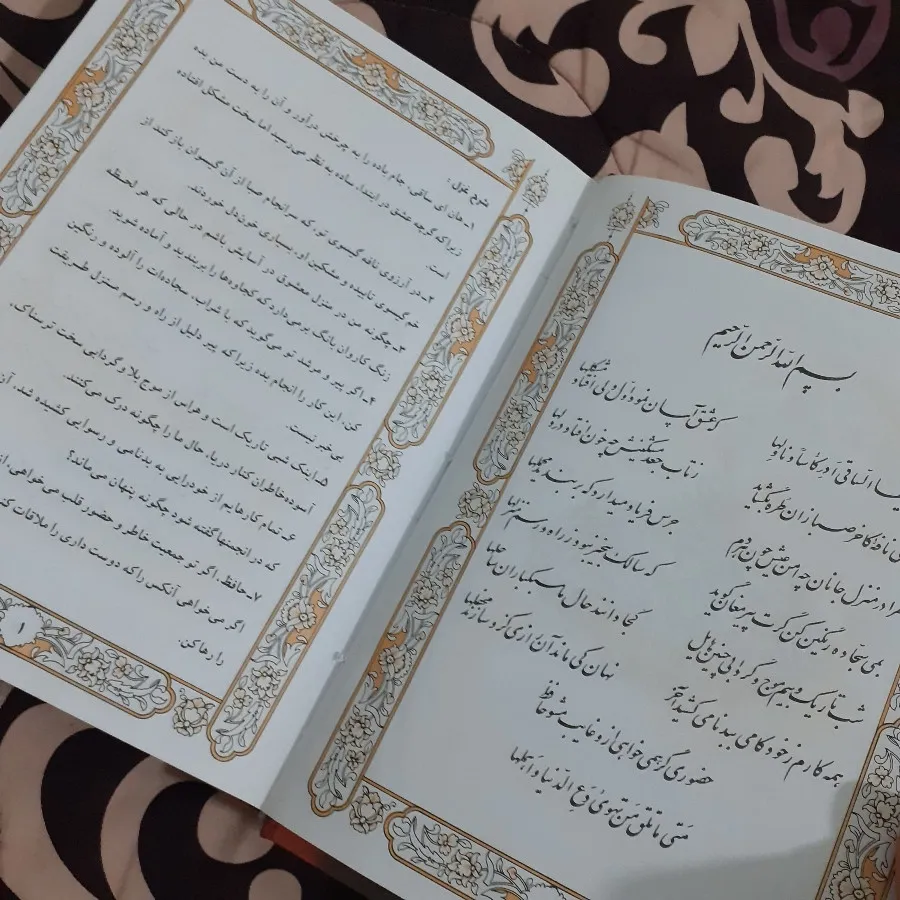 بسم الله الرحمن الرحیم
الساقی أدر کأساً و ناولها که عشق آسان نمود اول ولی افتاد مشکلها
نافه کاخر صبا زان طره بگشاید ز تاب جعد مشکینش چه خون افتاد در دلها
در منزل جانان چه امن عیش چون هر دم جرس فریاد میدارد که بربندید محملها
بمی سجاده رنگین کن گرت پیر مغان گوید که سالک بیخبر نبود ز راه و رسم منزلها
شب تاریک و بیم موج و گردابی چنین هایل کجا دانند حال ما سبکباران ساحلها
همه کارم ز خود کامی ببدنامی کشید آخر نهان کی ماند آن رازی کزو سازند محفلها
حضوری گر همی خواهی ازو غایب مشو حافظ
متی ما تلق من تهوی دع الدنیا و اهملها
شرح غزل:
۱ـ هان ای ساقی، جام باده را به چرخش درآور و آن را به دست من بده
زیرا که گرچه عشق در ابتدا، ساده به نظر می‌رسید اما سخت مشکل افتاده
است.
۲ـ در آرزوی نافه گیسوی تو، که سرانجام صبا از آن گیسوان باز کند از
خم گیسوی تابیده و مشکین او، بسیاری خون‌دل خوردند.
۳ـ چگونه من در منزل معشوق در آسایش باشم در حالی که هر لحظه
زنگ کاروان بانگ برمی‌دارد که کجاوه‌ها را بربندید و آماده شوید.
۴ـ اگر پیر و مرشد تو می‌گوید که با شراب، سجاده‌ات را آلوده و رنگین
کن، این کار را انجام بده زیرا که پیر دلیل از راه و رسم منزل طریقت
بی‌خبر نیست.
۵ـ اینک شبی تاریک است و هراس از موج بلا و گردابی سخت ترسناک،
آسوده‌خاطران کنار دریا، حال ما را چگونه درک می‌کنند.
۶ـ تمام کارهایم از خودرایی به بدنامی و رسوایی کشیده شد، آن
که در انجمنها گفته شود چگونه پنهان می‌ماند؟
۷ـ حافظ، اگر تو جمعیت خاطر و حضور قلب می‌خواهی، از
اگر می‌خواهی آنکس را که دوست داری را ملاقات کنی
را رها کن.
۱